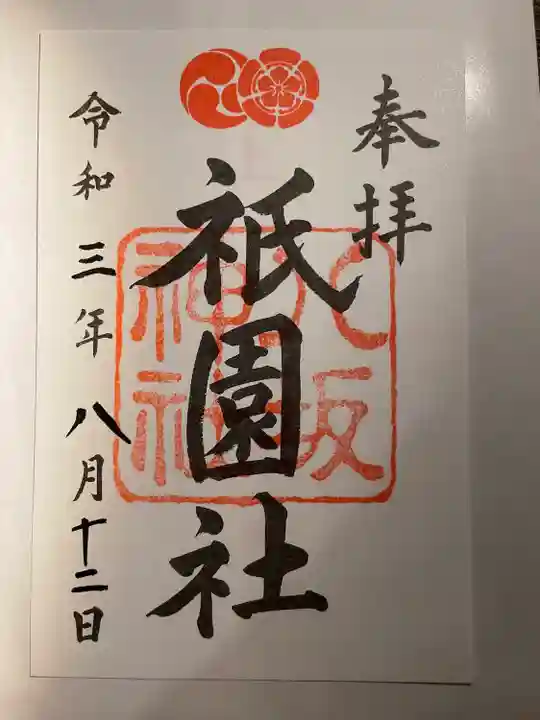 奉拝
祇園社
八坂
神社
令和三年八月十二日